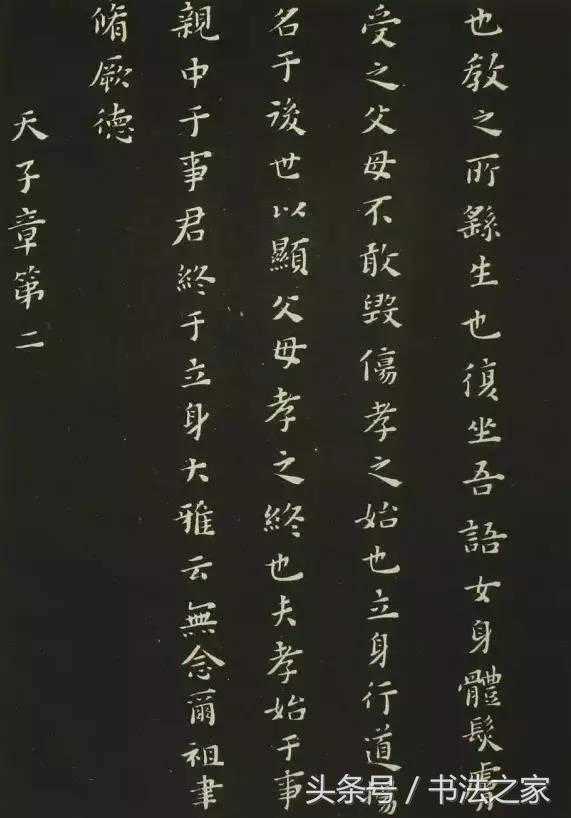 也教之所繇生也復坐吾語女身體髮膚
受之父母不敢毀傷孝之始也立身行道揚
名于後世以顯父母孝之終也夫孝始于事
親中于事君終于立身大雅云無念爾祖聿
脩厥德
天子章第二
头条号/书法之家